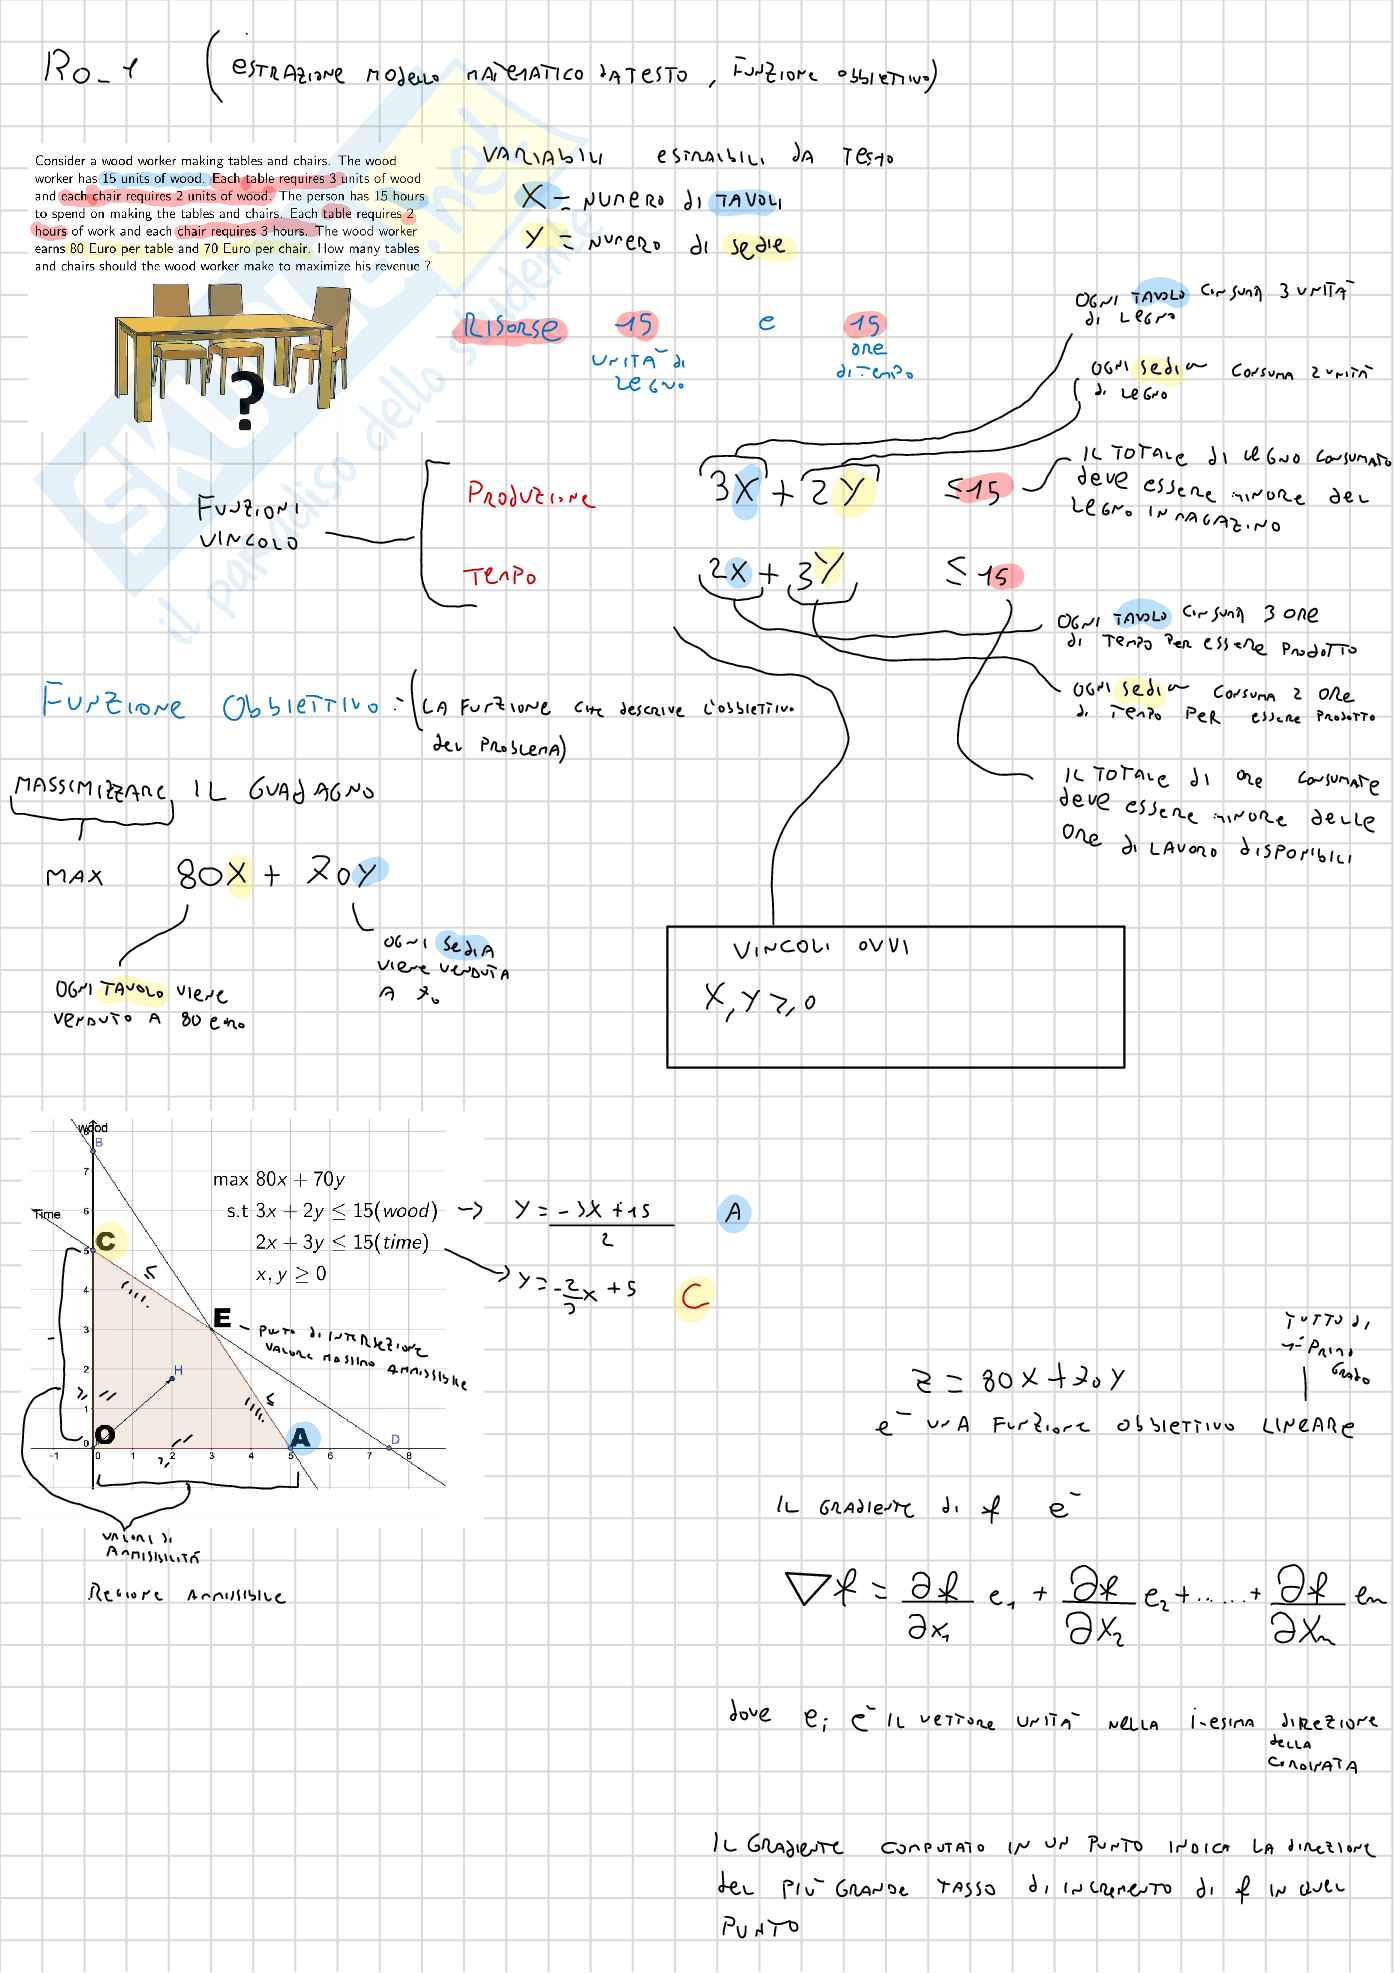 RO_1 (ESTRAZIONE MODELLO MATEMATICO DA TESTO, FUNZIONE OBBIETTIVO)
Consider a wood worker making tables and chairs. The wood
worker has 15 units of wood. Each table requires 3 units of wood
and each chair requires 2 units of wood. The person has 15 hours
to spend on making the tables and chairs. Each table requires 2
hours of work and each chair requires 3 hours. The wood worker
earns 80 Euro per table and 70 Euro per chair. How many tables
and chairs should the wood worker make to maximize his revenue ?
?
VARIABILI ESTRAIBILI DA TESTO
X = NUMERO DI TAVOLI
Y = NUMERO DI SEDIE
RISORSE 15 e 15
UNITÀ DI
LEGNO
ORE
DI TEMPO
OGNI TAVOLO CONSUMA 3 UNITÀ
DI LEGNO
OGNI SEDIA CONSUMA 2 UNITÀ
DI LEGNO
FUNZIONI
VINCOLO
PRODUZIONE 3X + 2Y ≤ 15
IL TOTALE DI LEGNO CONSUMATO
DEVE ESSERE MINORE DEL
LEGNO IN MAGAZINO
TEMPO 2X + 3Y ≤ 15
OGNI TAVOLO CONSUMA 3 ORE
DI TEMPO PER ESSERE PRODOTTO
OGNI SEDIA CONSUMA 2 ORE
DI TEMPO PER ESSERE PRODOTTO
IL TOTALE DI ORE CONSUMATE
DEVE ESSERE MINORE DELLE
ORE DI LAVORO DISPONIBILI
FUNZIONE OBBIETTIVO :- (LA FUNZIONE CHE DESCRIVE L'OBBIETTIVO
DEL PROBLEMA)
MASSIMIZZARE IL GUADAGNO
MAX 80X + 70Y
OGNI TAVOLO VIENE
VENDUTO A 80 EURO
OGNI SEDIA
VIENE VENDUTA
A 70
VINCOLI OVVI
X, Y ≥ 0
wood
Time
B
C
E
H
O
A
D
8
7
6
5
4
3
2
1
0
-1 0 1 2 3 4 5 6 7 8
max 80x + 70y
s.t 3x + 2y ≤ 15(wood)
2x + 3y ≤ 15(time)
x, y ≥ 0
Y = -3X + 15 / 2 A
Y = -2/3 X + 5 C
PUNTO DI INTERSEZIONE
VALORE MASSIMO AMMISSIBILE
VALORI DI
AMMISIBILITÀ
REGIONE AMMISSIBILE
TUTTO DI
PRIMO
GRADO
Z = 80X + 70Y
È UNA FUNZIONE OBBIETTIVO LINEARE
IL GRADIENTE DI f È
∇f = ∂f/∂x₁ e₁ + ∂f/∂x₂ e₂ + ...... + ∂f/∂xₙ eₙ
DOVE eᵢ È IL VETTORE UNITÀ NELLA i-ESIMA DIREZIONE
DELLA
COROINATA
IL GRADIENTE COMPUTATO IN UN PUNTO INDICA LA DIREZIONE
DEL PIÙ GRANDE TASSO DI INCREMENTO DI f IN QUEL
PUNTO
SKUOLA.net
il paradiso dello studente